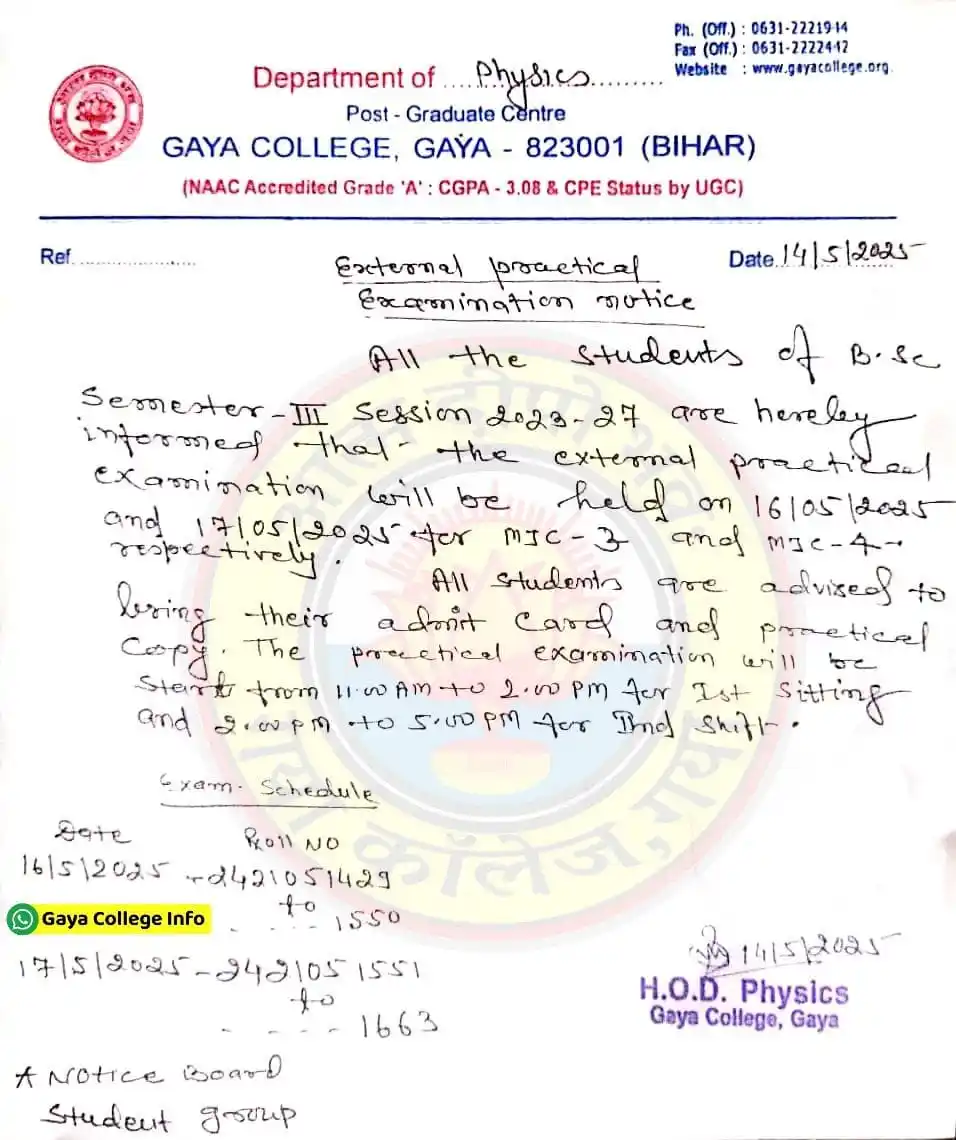 Ph. (Off.) : 0631-2221944
Fax (Off.) : 0631-2222442
Website : www.gayacollege.org.
Department of ....Physics..........
Post - Graduate Centre
GAYA COLLEGE, GAYA - 823001 (BIHAR)
(NAAC Accredited Grade 'A' : CGPA - 3.08 & CPE Status by UGC)
Ref......................
Date.14/5/2025
External practical
Examination notice
All the students of B.Sc
Semester-III Session 2023-27 are hereby
informed that the external practical
examination will be held on 16/05/2025
and 17/05/2025 for MJC-3 and MJC-4
respectively.
All students are advised to
bring their admit card and practical
Copy. The practical examination will be
Start from 11.00 AM to 2.00 PM for Ist Sitting
and 2.00 PM to 5.00 PM for IInd Shift.
Exam. Schedule
Date Roll NO
16/5/2025 - 2421051429
to
- - - - 1550
Gaya College Info
17/5/2025 - 2421051551
to
- - - - 1663
14/5/2025
H.O.D. Physics
Gaya College, Gaya
Notice Board
Student group
कॉलेज, गया